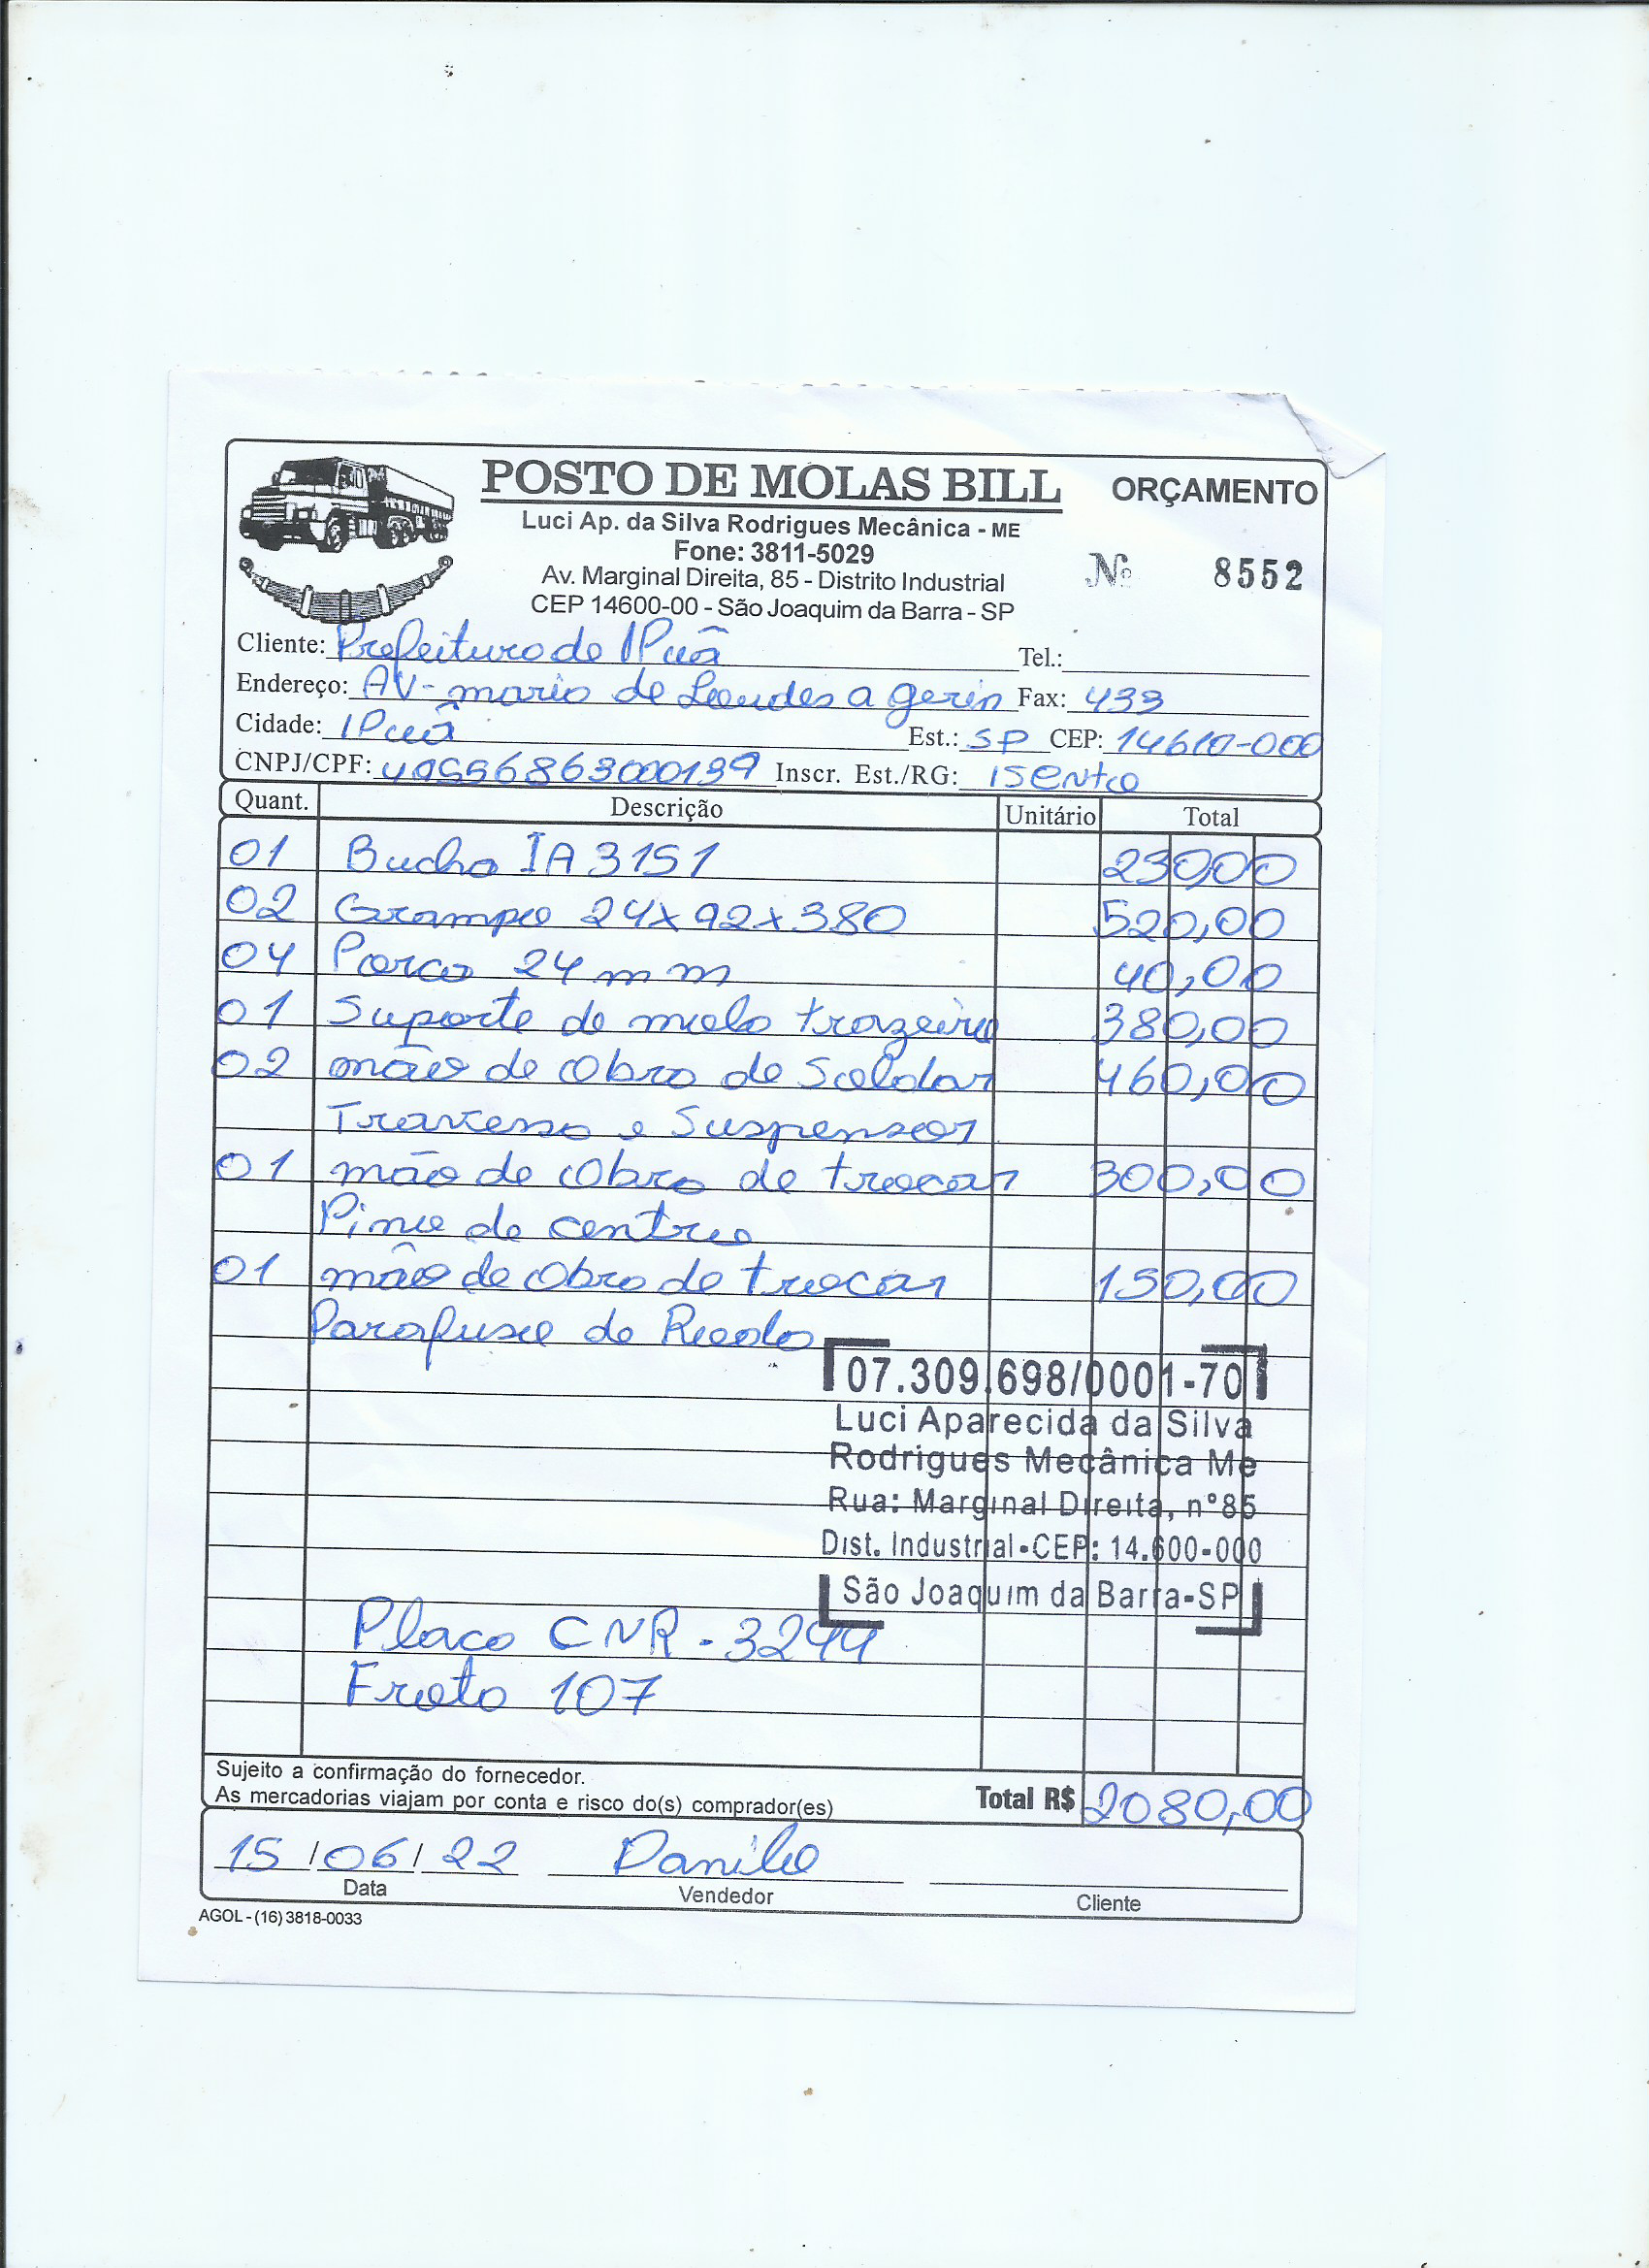 POSTO DE MOLAS BILL
ORÇAMENTO
Luci Ap. da Silva Rodrigues Mecânica - ME
Fone: 3811-5029
Av. Marginal Direita, 85 - Distrito Industrial
CEP 14600-00 - São Joaquim da Barra - SP
Nº 8552
Cliente: Prefeitura de IPuã Tel.:
Endereço: AV- maria de Lourdes a gerin Fax: 433
Cidade: IPuã Est.: SP CEP: 14610-000
CNPJ/CPF: Inscr. Est./RG: isento
Quant. Descrição Unitário Total
01 Bucha IA 3151 230,00
02 Grampo 24x92x380 520,00
04 Porca 24mm 40,00
01 Suporte de mola trazeiro 380,00
02 mão de obra de Soldar 460,00
Travessa e Suspensor
01 mão de obra de trocar 300,00
Pino de centro
01 mão de obra de trocar 150,00
Parafuso de Roda
07.309.698/0001-70
Luci Aparecida da Silva
Rodrigues Mecânica Me
Rua: Marginal Direita, nº85
Dist. Industrial-CEP: 14.600-000
São Joaquim da Barra-SP
Placa CNR-3244
Frota 107
Sujeito a confirmação do fornecedor.
As mercadorias viajam por conta e risco do(s) comprador(es)
Total R$ 2080,00
15/06/22 Danilo
Data Vendedor Cliente
AGOL - (16) 3818-0033